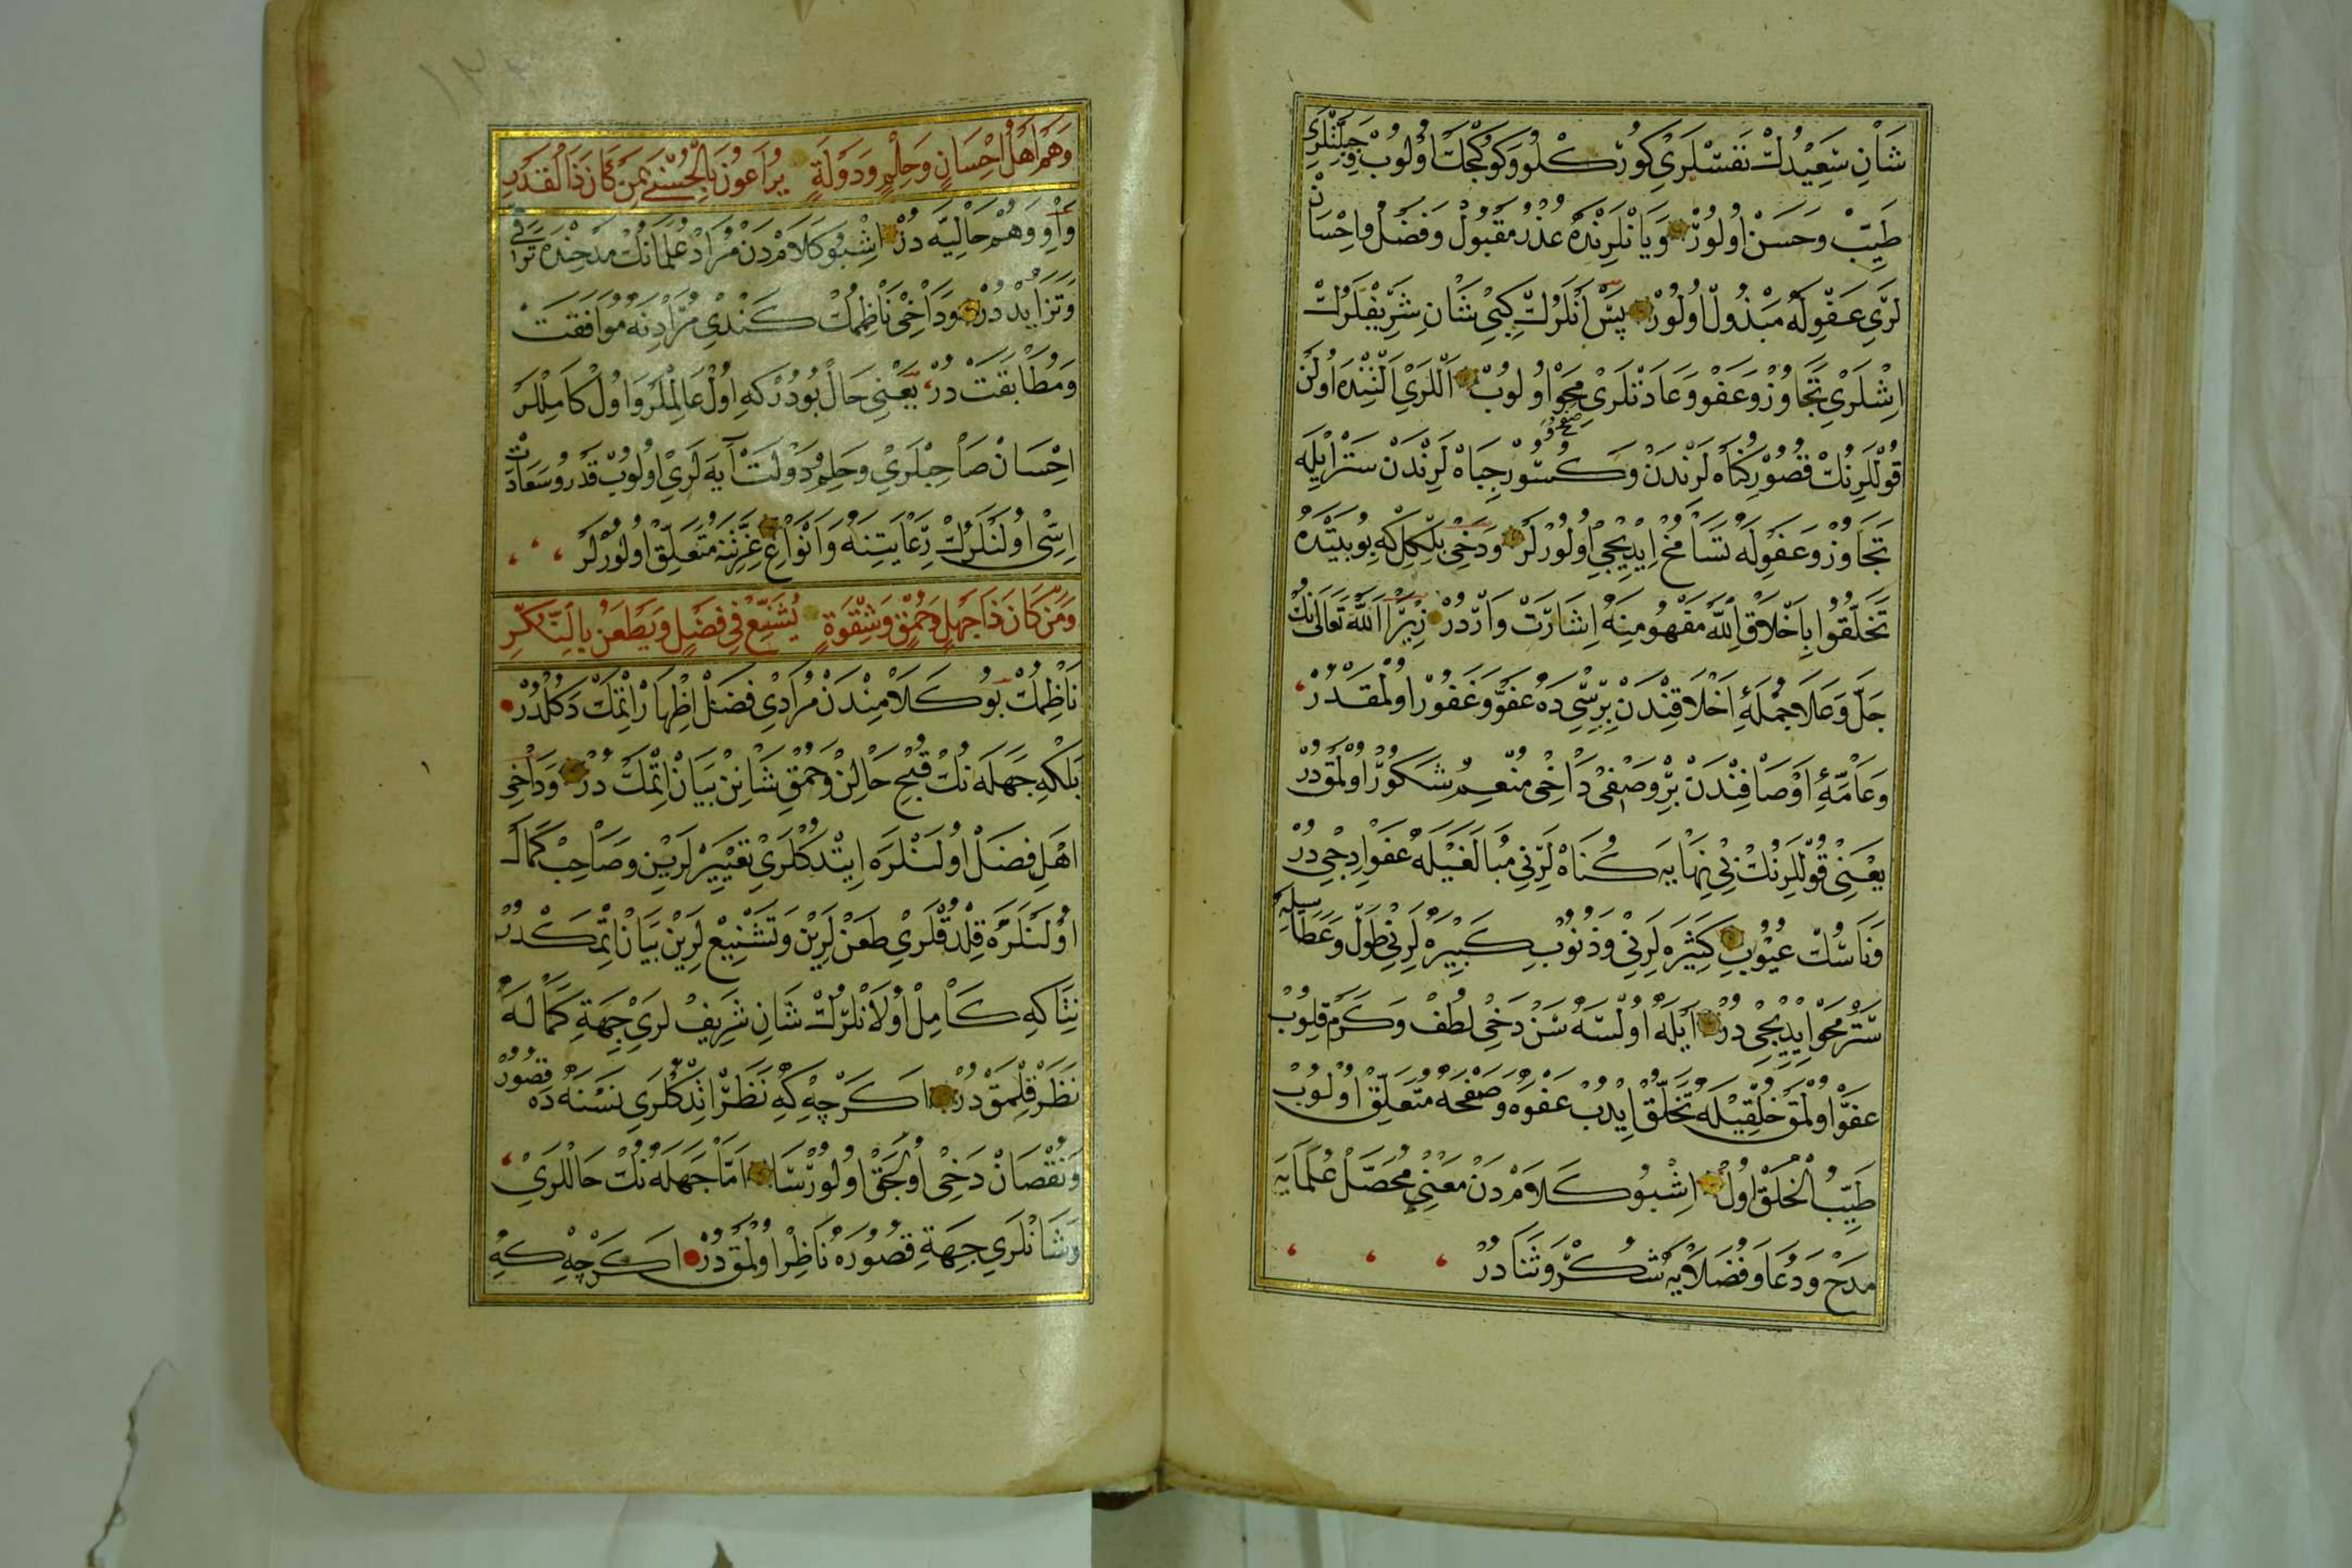 شَانِ سَعِيدُكْ نَفْسْلَرِي كُورْكْلُو وَكُوكْجَكْ اُولُوبْ وَجِبِلَّتْلَرِي
طَيِّبْ وَحَسَنْ اُولُورْ وَيَا نْلَرِنْدَهْ عُذْرْ مَقْبُولْ وَفَضْلْ وَاِحْسَانْ
لَرِي عَفْوِلَهْ مَبْذُولْ اُولُورْ پَسْ اَنْلَرُكْ كِبِي شَانِ شَرِيفْلَرُكْ
اِشْلَرِي تَجَاوُزْ وَعَفْو وَعَادَتْلَرِي مَحْوْ اُولُوبْ اَللَّرِي اَلْتِنْدَهْ اُولَنْ
قُولْلَرِنُكْ قُصُورِ كُنَاهْلَرِنْدَنْ وَكَسُورِ جِبَاهْلَرِنْدَنْ سَتْرْ اِيلَهْ
تَجَاوُزْ وَعَفْوِلَهْ تَسَامُحْ اِيدِيجِي اُولُورْلَرْ وَدَخِي بِلْكِلْ كِهْ بُو بَيْتْدَهْ
تَخَلَّقُوا بِاَخْلَاقِ اللّٰهِ مَفْهُومِنَهْ اِشَارَتْ وَارْدُرْ زِيرَا اَللّٰهُ تَعَالَى نُكْ
جَلَّ وَعَلَا جُمْلَۀِ اَخْلَاقِنْدَنْ بِرِيسِي دَهْ عَفُوّ وَغَفُورْ اُولْمَقْدُرْ
وَعَامَّۀِ اَوْصَافِنْدَنْ بِرْ وَصْفِي دَاخِي مُنْعِمِ شَكُورْ اُولْمَقْدُرْ
يَعْنِي قُولْلَرِنُكْ بِي نِهَايَهْ كُنَاهْلَرِنِي مُبَالَغَيْلَهْ عَفْوْ اِدِجِي دُرْ
وَنَاسُكْ عُيُوبِ كَثِيرَهْلَرِنِي وَذُنُوبِ كَبِيرَهْلَرِنِي طَوْلْ وَعَطَاسِيلَهْ
سَتْرْ مَحْوْ اِيدِيجِي دُرْ اَيْلَهْ اُولْسَهْ سَنْ دَخِي لُطْفْ وَكَرَمْ قِلُوبْ
عَفُوّ اُولْمَقْ خُلْقِيلَهْ تَخَلُّقْ اِيدُبْ عَفْوَهْ وَصَفْحَهْ مُتَعَلِّقْ اُولُوبْ
طَيِّبُ الْخُلْقْ اُولْ اِشْبُو كَلَامْدَنْ مَعْنِيِ مُحَصَّلْ عُلَمَايَهْ
مَدْحْ وَدُعَا وَفُضَلَايَهْ شُكْرْ وَثَنَا دُرْ
وَهُمْ اَهْلُ اِحْسَانٍ وَحِلْمٍ وَدَوْلَةٍ يُرَاعُونَ بِالْحُسْنَى بِمَنْ كَانَ ذَا الْقَدْرِ
وَاوِ وَهُمْ حَالِيَّهْ دُرْ اِشْبُو كَلَامْدَنْ مُرَادْ عُلَمَانُكْ مَدْحِنْدَهْ تَرَقِّي
وَتَزَايُدْ دُرْ وَدَاخِي نَاظِمُكْ كَنْدِي مُرَادِنَهْ مُوَافَقَتْ
وَمُطَابَقَتْ دُرْ يَعْنِي حَالْ بُودُرْ كِهْ اُولْ عَالِمْلَرْ وَاُولْ كَامِلْلَرْ
اِحْسَانْ صَاحِبْلَرِي وَحِلْمْ وَدَوْلَتْ آيَهْلَرِي اُولُوبْ قَدْرُ وَسَعَادَتْ
اِسِّي اُولَنْلَرُكْ رِعَايَتِنَهْ وَاَنْوَاعِ عِزَّتِنَهْ مُتَعَلِّقْ اُولُورْلَرْ
وَمَنْ كَانَ ذَا جَهْلٍ وَحُمْقٍ وَشِقْوَةٍ يُشَنِّعُ فِي فَضْلٍ وَيَطْعَنُ بِالنُّكْرِ
نَاظِمُكْ بُو كَلَامِنْدَنْ مُرَادِي فَضَلْ اِظْهَارْ اِتْمَكْ دَكُلْدُرْ
بَلْكِهْ جَهَلَهْ نُكْ قُبْحِ حَالِنْ وَحُمْقِ شَانِنْ بَيَانْ اِتْمَكْ دُرْ وَدَاخِي
اَهْلِ فَضَلْ اُولَنْلَرَهْ اِيتْدُكْلَرِي تَعْيِيرْلَرِينْ وَصَاحِبْ كَمَالْ
اُولَنْلَرَهْ قِلْدُقْلَرِي طَعَنْلَرِينْ وَتَشْنِيعْلَرِينْ بَيَانْ اِتْمَكْدُرْ
نِتَاكِهْ كَامِلْ اُولَانْلَرُكْ شَانِ شَرِيفْلَرِي جِهَةِ كَمَالَهْ
نَظَرْ قِلْمَقْ دُرْ اَكَرْچِهْ كِهْ نَظَرْ اِتْدُكْلَرِي نَسْنَهْ دَهْ قُصُورْ
وَنُقْصَانْ دَخِي اُولِجَقْ اُولُورْسَا اَمَّا جَهَلَهْ نُكْ حَاللَرِي
وَشَانْلَرِي جِهَةِ قُصُورَهْ نَاظِرْ اُولْمَقْ دُرْ اَكَرْچِهْ كِهْ